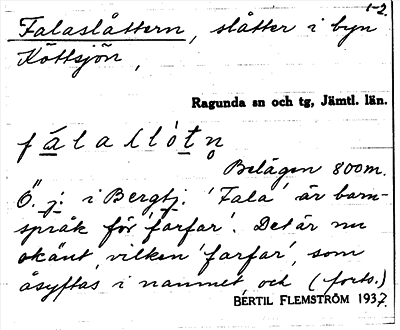 1-2.
Falaslåttern, slåtter i byn
Köttsjön,
Ragunda sn och tg, Jämtl. län.
Belägen 800 m.
Ö. j. i Bergtj. 'Fala' är barn-
språk för 'farfar'. Det är nu
okänt, vilken 'farfar', som
åsyftas i namnet, och (forts.)
BERTIL FLEMSTRÖM 1937.